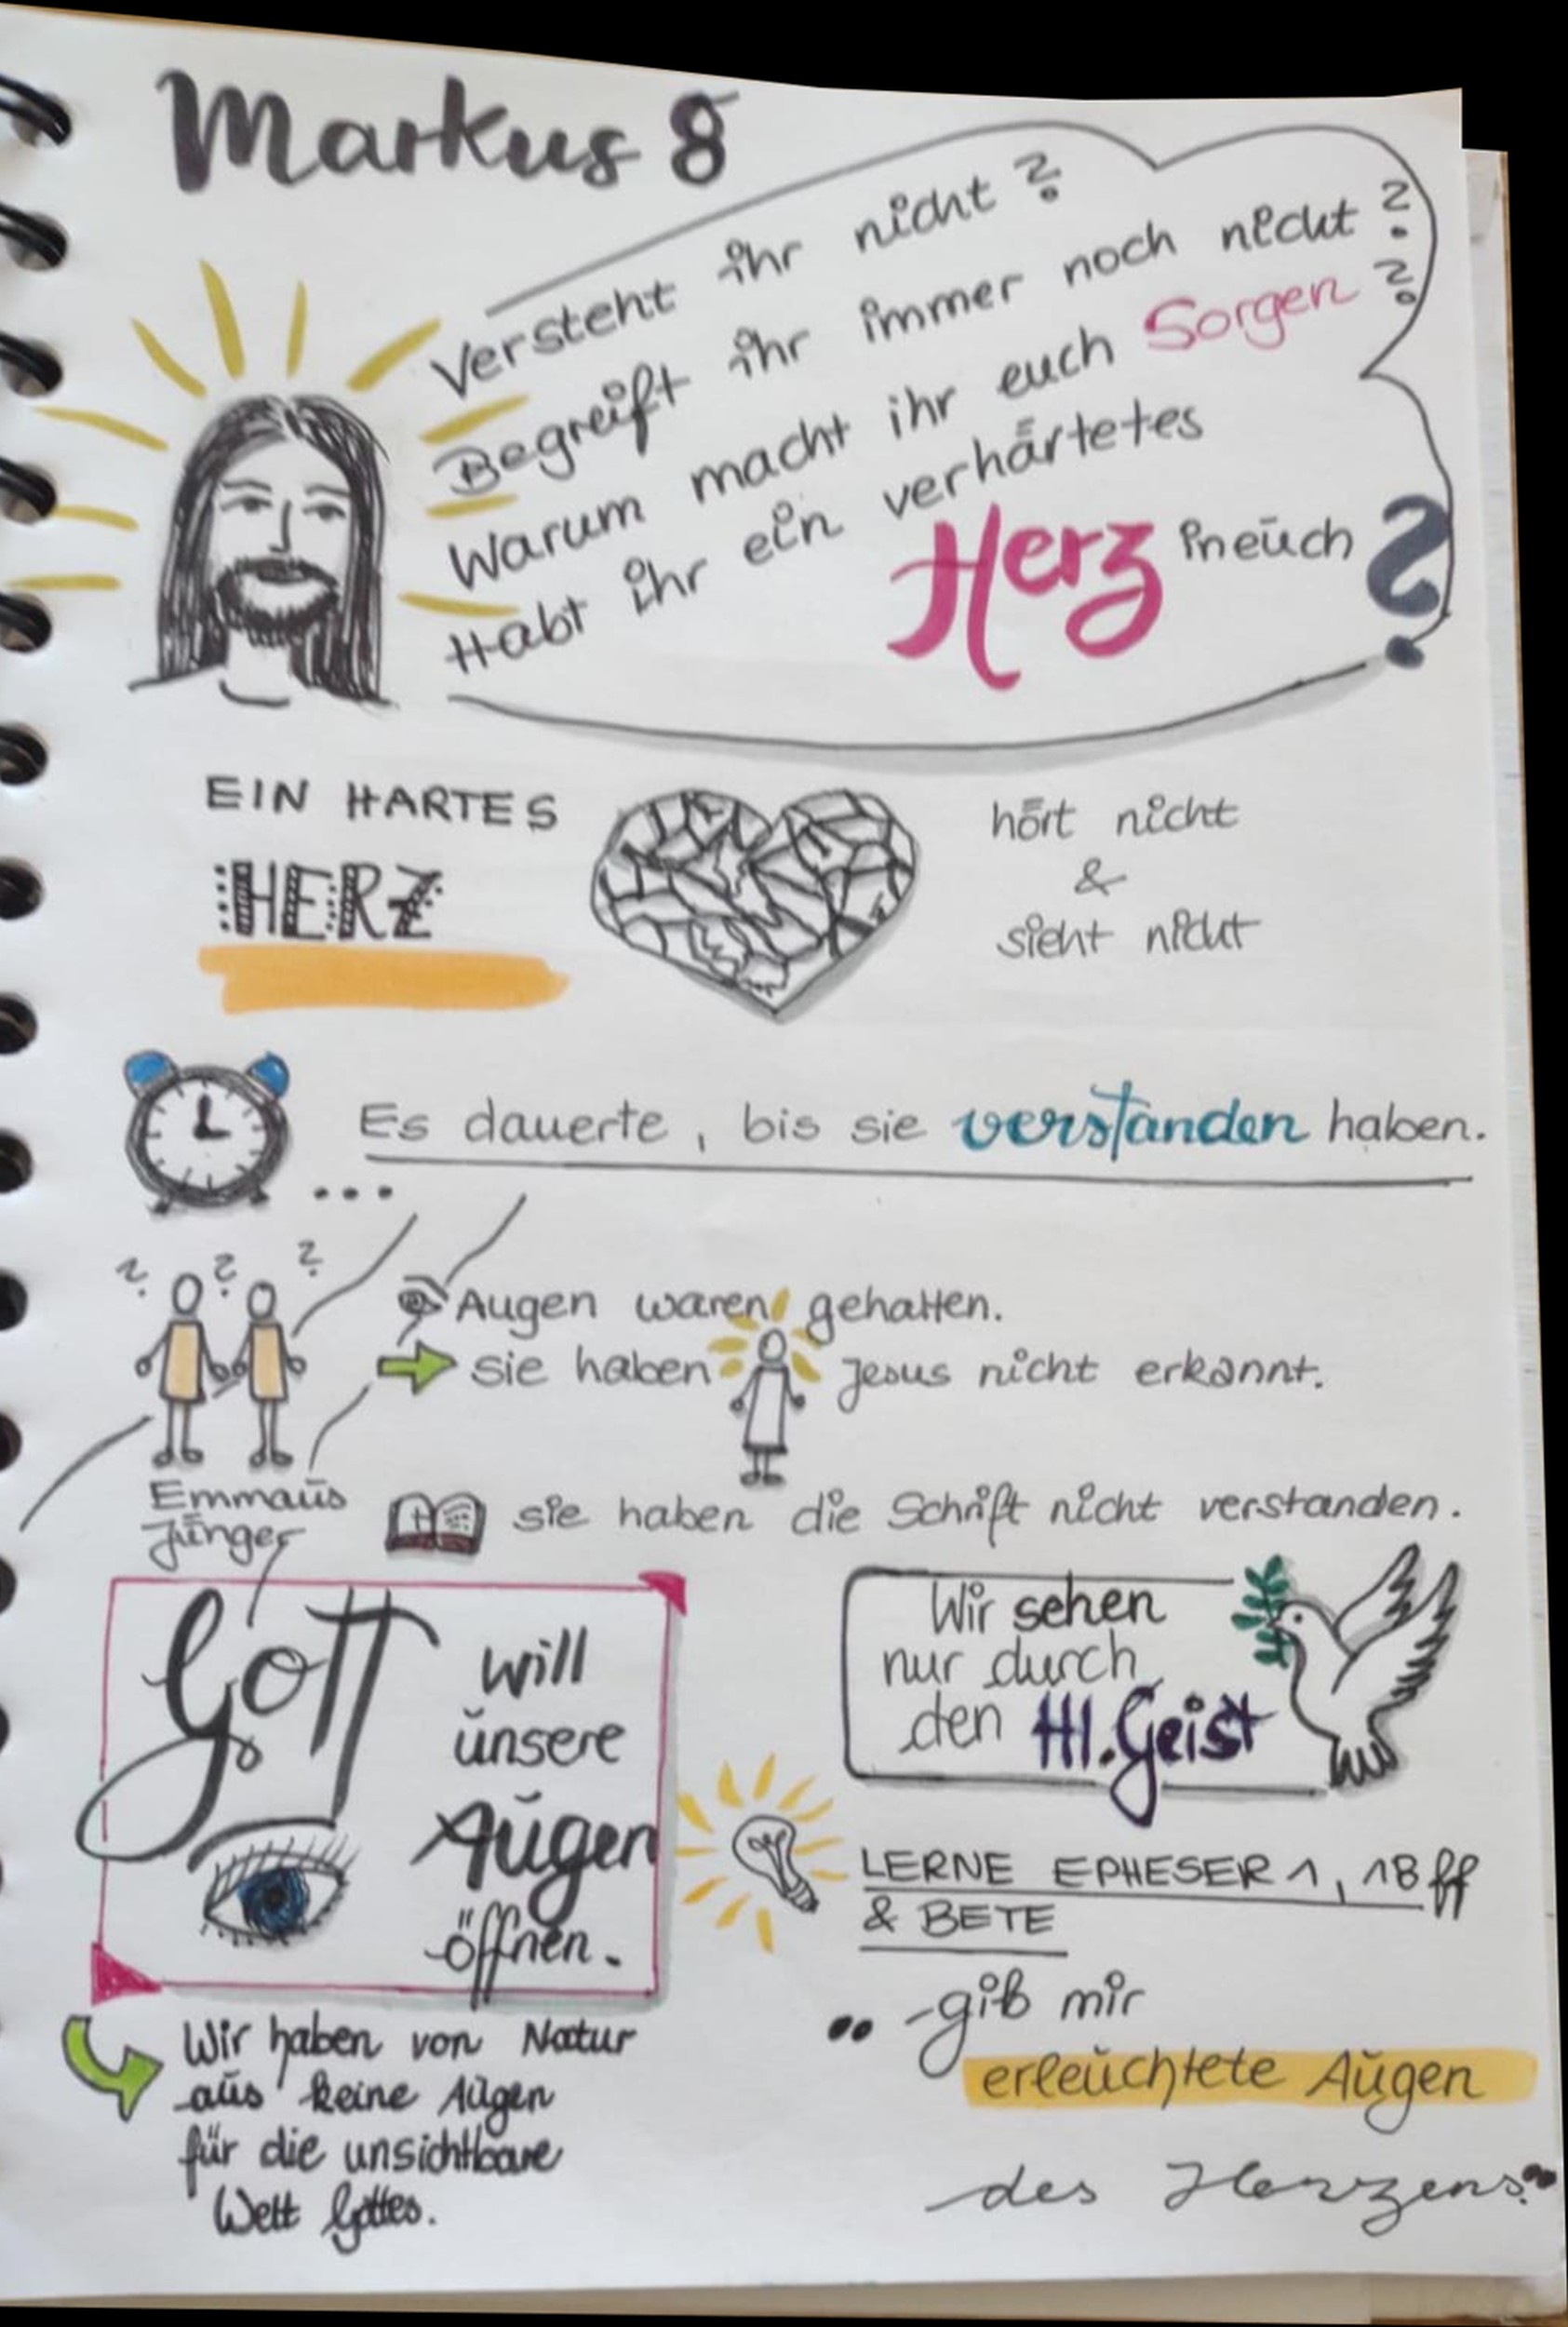 Markus 8
Versteht ihr nicht?
Begreift ihr immer noch nicht?
Warum macht ihr euch Sorgen?
Habt ihr ein verhärtetes
Herz in euch?
EIN HARTES
HERZ
hört nicht
&
sieht nicht
Es dauerte, bis sie verstanden haben.
...
? ? ?
Augen waren gehalten.
sie haben Jesus nicht erkannt.
Emmaus
Jünger
sie haben die Schrift nicht verstanden.
Gott will
unsere
Augen
öffnen.
Wir haben von Natur
aus keine Augen
für die unsichtbare
Welt Gottes.
Wir sehen
nur durch
den Hl. Geist
LERNE EPHESER 1, 18 ff
& BETE
"gib mir
erleuchtete Augen
des Herzens."